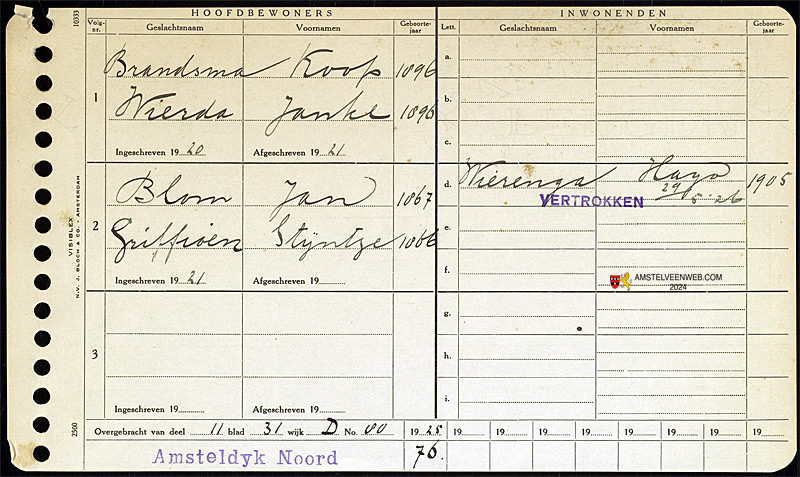 HOOFDBEWONERS
INWONENDEN
10333
Volg-nr.
Geslachtsnaam
Voornamen
Geboorte-jaar
Lett.
Geslachtsnaam
Voornamen
Geboorte-jaar
1
Brandsma Koop 1896
Wierda Janke 1896
Ingeschreven 19 20
Afgeschreven 19 21
2
Blom Jan 1867
Griffioen Stijntje 1866
Ingeschreven 19 21
Afgeschreven 19
3
Ingeschreven 19
Afgeschreven 19
a.
b.
c.
d. Wierenga Hayo 1905
29/5 '26
VERTROKKEN
e.
f.
AMSTELVEENWEB.COM
2024
g.
h.
i.
VISIBLEX
N.V. J. BLOCH & CO. - AMSTERDAM
2500
Overgebracht van deel 11 blad 31 wijk D No. 80
19 25 19 19 19 19 19 19 19
Amsteldyk Noord
76.